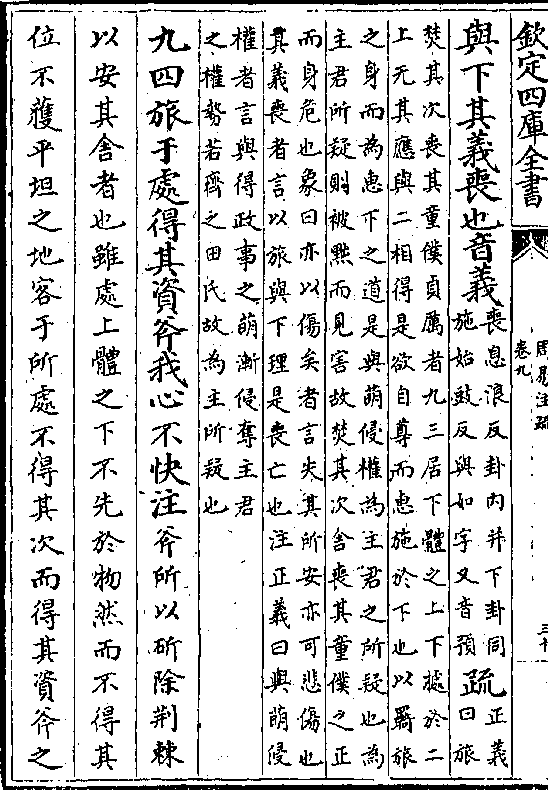 欽定四庫全書
周易注疏
卷九
與下其義喪也音義
喪息浪反卦内并下卦同
施始豉反與如字又音預
疏
正義
曰旅
焚其次喪其童僕貞厲者九三居下體之上下據於二
上无其應與二相得是欲自尊而惠施於下也以羇旅
之身而為惠下之道是與萌侵權為主君之所疑也為
主君所疑則被黜而見害故焚其次舍喪其童僕之正
而身危也象曰亦以傷矣者言失其所安亦可悲傷也
其義喪者言以旅與下理是喪亡也注正義曰與萌侵
權者言與得政事之萌漸侵奪主君
之權勢若齊之田氏故為主所疑也
九四旅于處得其資斧我心不快注斧所以斫除荆棘
以安其舍者也雖處上體之下不先於物然而不得其
位不獲平坦之地客于所處不得其次而得其資斧之